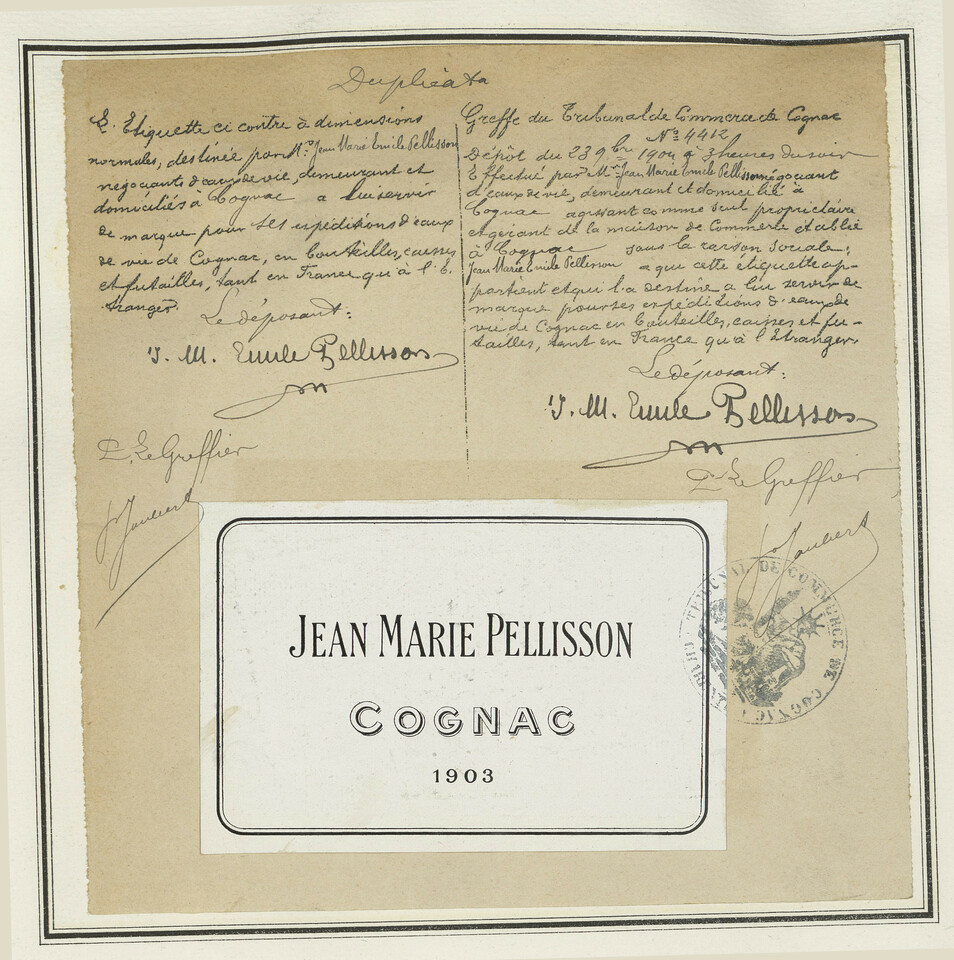 Duplicata
L'Etiquette ci contre à dimensions
normales, destinée par Mr. Jean Marie Emile Pellisson
négociants d'eaux de vie, demeurant et
domiciliés à Cognac a lui servir
de marque pour ses expéditions d'eaux
de vie de Cognac, en bouteilles, caisses
et futailles, tant en France qu'à l'E-
tranger.
Le déposant:
J. M. Emile Pellisson
P. Le Greffier
Greffe du Tribunal de Commerce de Cognac
No 4412
Dépôt du 23 9bre 1904 à 3 heures du soir
Effectué par Mr. Jean Marie Emile Pellisson négociant
d'eaux de vie, demeurant et domicilié à
Cognac agissant comme seul propriétaire
et gérant de la maison de Commerce établie
à Cognac sous la raison sociale:
Jean Marie Emile Pellisson a que cette étiquette ap-
partient et qui l'a destine a lui servir de
marque pour ses expéditions d'eaux de
vie de Cognac en bouteilles, caisses et fu-
tailles, tant en France qu'à l'Etranger.
Le déposant:
J. M. Emile Pellisson
P. Le Greffier
JEAN MARIE PELLISSON
COGNAC
1903
TRIBUNAL DE COMMERCE DE COGNAC